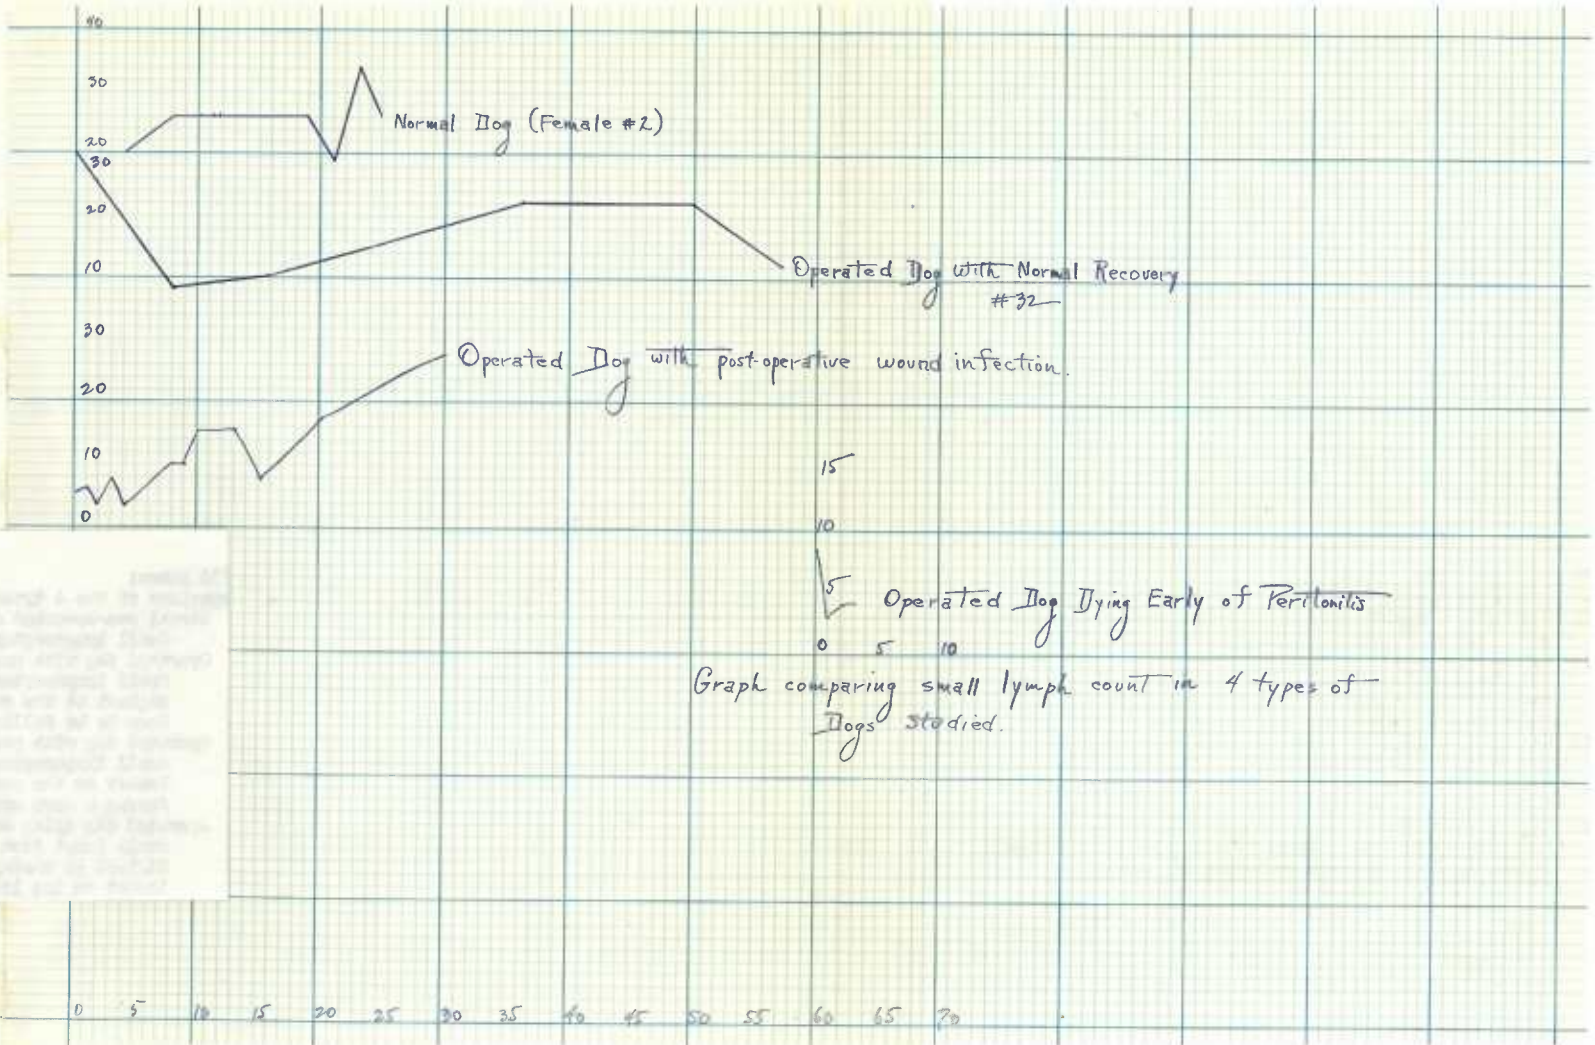 40
30
Normal Dog (Female #2)
20
30
20
10
Operated Dog with Normal Recovery
#32
30
Operated Dog with post-operative wound infection.
20
10
15
0
10
5
Operated Dog Dying Early of Peritonitis
0 5 10
Graph comparing small lymph count in 4 types of
Dogs studied.
0 5 10 15 20 25 30 35 40 45 50 55 60 65 70